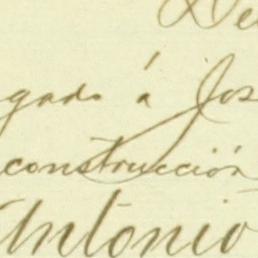 De
gado á Jos
construcción
Antonio